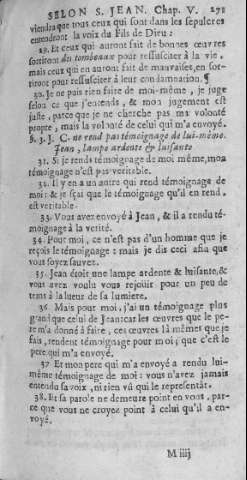 SELON S. JEAN. Chap. V. 271
viendra que tous ceux qui sont dans les sepulcres
entendront la voix du Fils de Dieu:
29. Et ceux qui auront fait de bonnes œuvres
sortiront des tombeaux pour ressusciter à la vie,
mais ceux qui en auront fait de mauvaises, en sor-
tiront pour ressusciter à leur condamnation. ¶
30. Je ne puis rien faire de moi-même, je juge
selon ce que j'entends, & mon jugement est
juste, parce que je ne cherche pas ma volonté
propre, mais la volonté de celui qui m'a envoyé.
§. 3. J. C. ne rend pas témoignage de lui-même.
Jean, Lampe ardente & luisante
31. Si je rends témoignage de moi même, mon
témoignage n'est pas veritable.
32. Il y en a un autre qui rend témoignage de
moi: & je sçai que le témoignage qu'il en rend,
est veritable.
33. Vous avez envoyé à Jean, & il a rendu té-
moignage à la verité.
34. Pour moi, ce n'est pas d'un homme que je
reçois le témoignage: mais je dis ceci afin que
vous soyez sauvez.
35. Jean étoit une lampe ardente & luisante, &
vous avez voulu vous rejouir pour un peu de
tems à la lueur de sa lumiere.
36. Mais pour moi, j'ai un témoignage plus
grand que celui de Jean: car les œuvres que le pe-
re m'a donné à faire, ces œuvres là mêmes que je
fais, rendent témoignage pour moi; que c'est le
pere qui m'a envoyé.
37. Et mon pere qui m'a envoyé a rendu lui-
même témoignage de moi: vous n'avez jamais
entendu sa voix, ni rien vû qui le representât.
38. Et sa parole ne demeure point en vous, par-
ce que vous ne croyez point à celui qu'il a en-
voyé.
M iiij